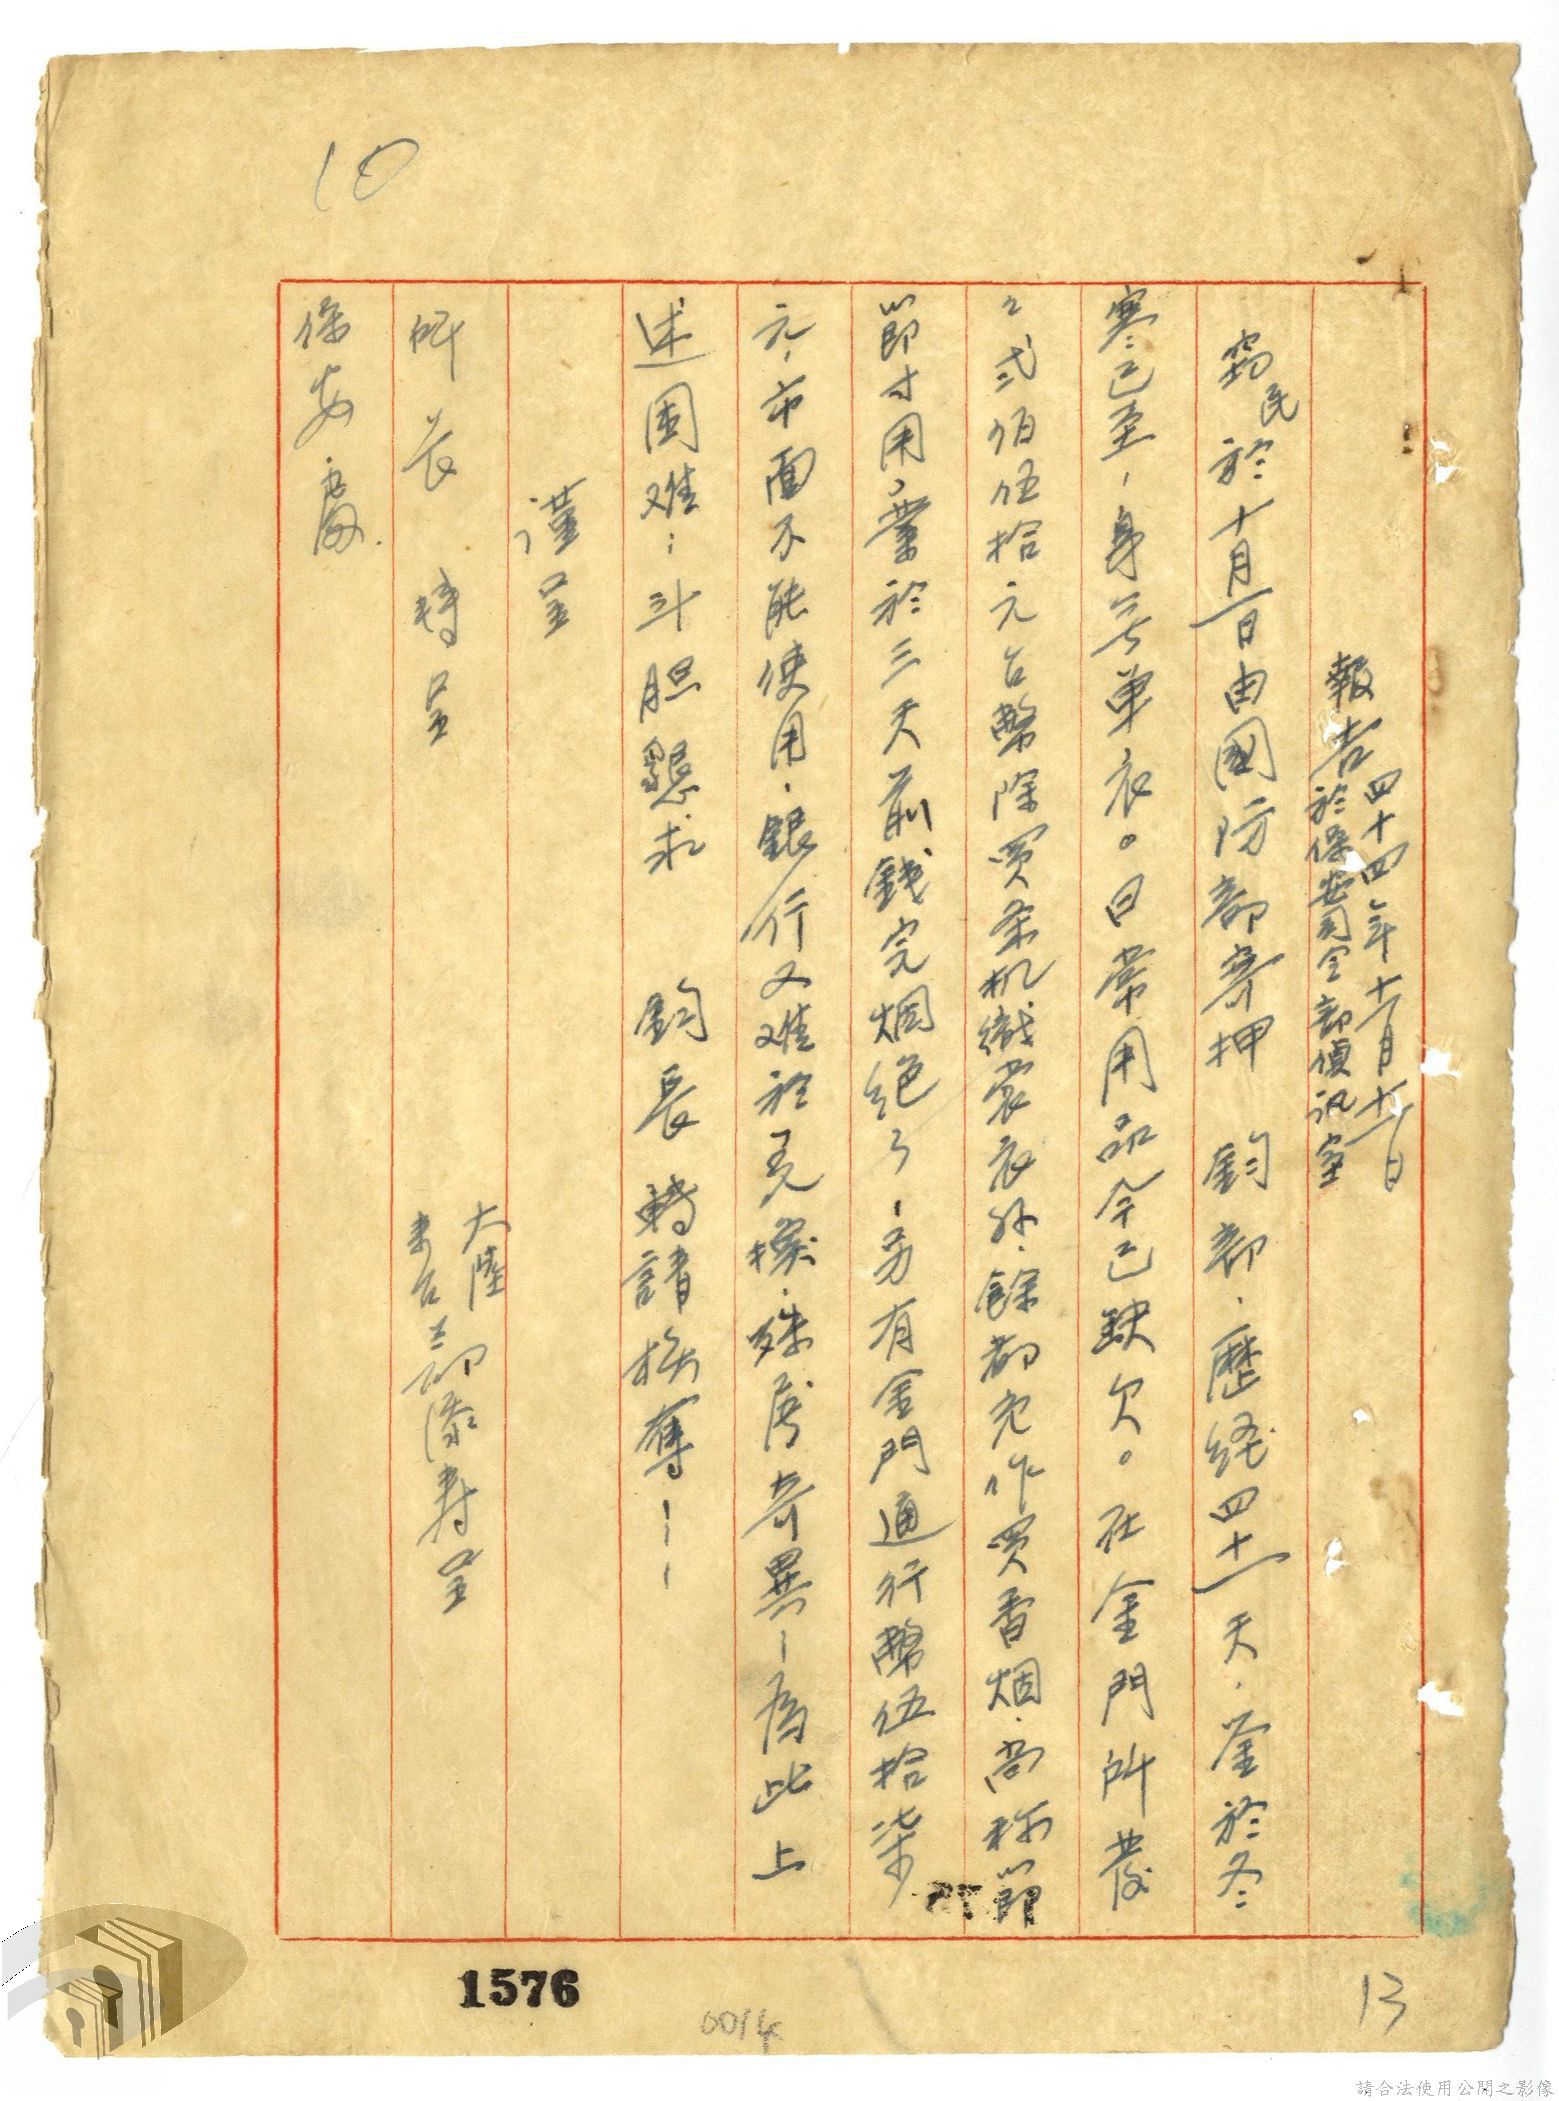 10
報告 四十四年十一月十一日
於保安司令部偵訊室
窃民於十月一日由國防部寄押 鈞部．歷経四十一天．茲於冬
寒已至，身无单衣。日常用品今已缺欠。在金門所發
之弍佰伍拾元台幣除買条机織裳衣外．餘都充作買香烟．尚称節
節寸用，業於三天前錢完烟绝了，另有金門通行幣伍拾柒
元，市面不能使用．銀行又难於兌換．殊屬奇異，為此上
述困难：斗胆懇求 鈞長轉請核奪！！！
謹呈
所長 轉呈
大陸
來台 添壽呈
保安處．
1576
0014
13
請合法使用公開之影像